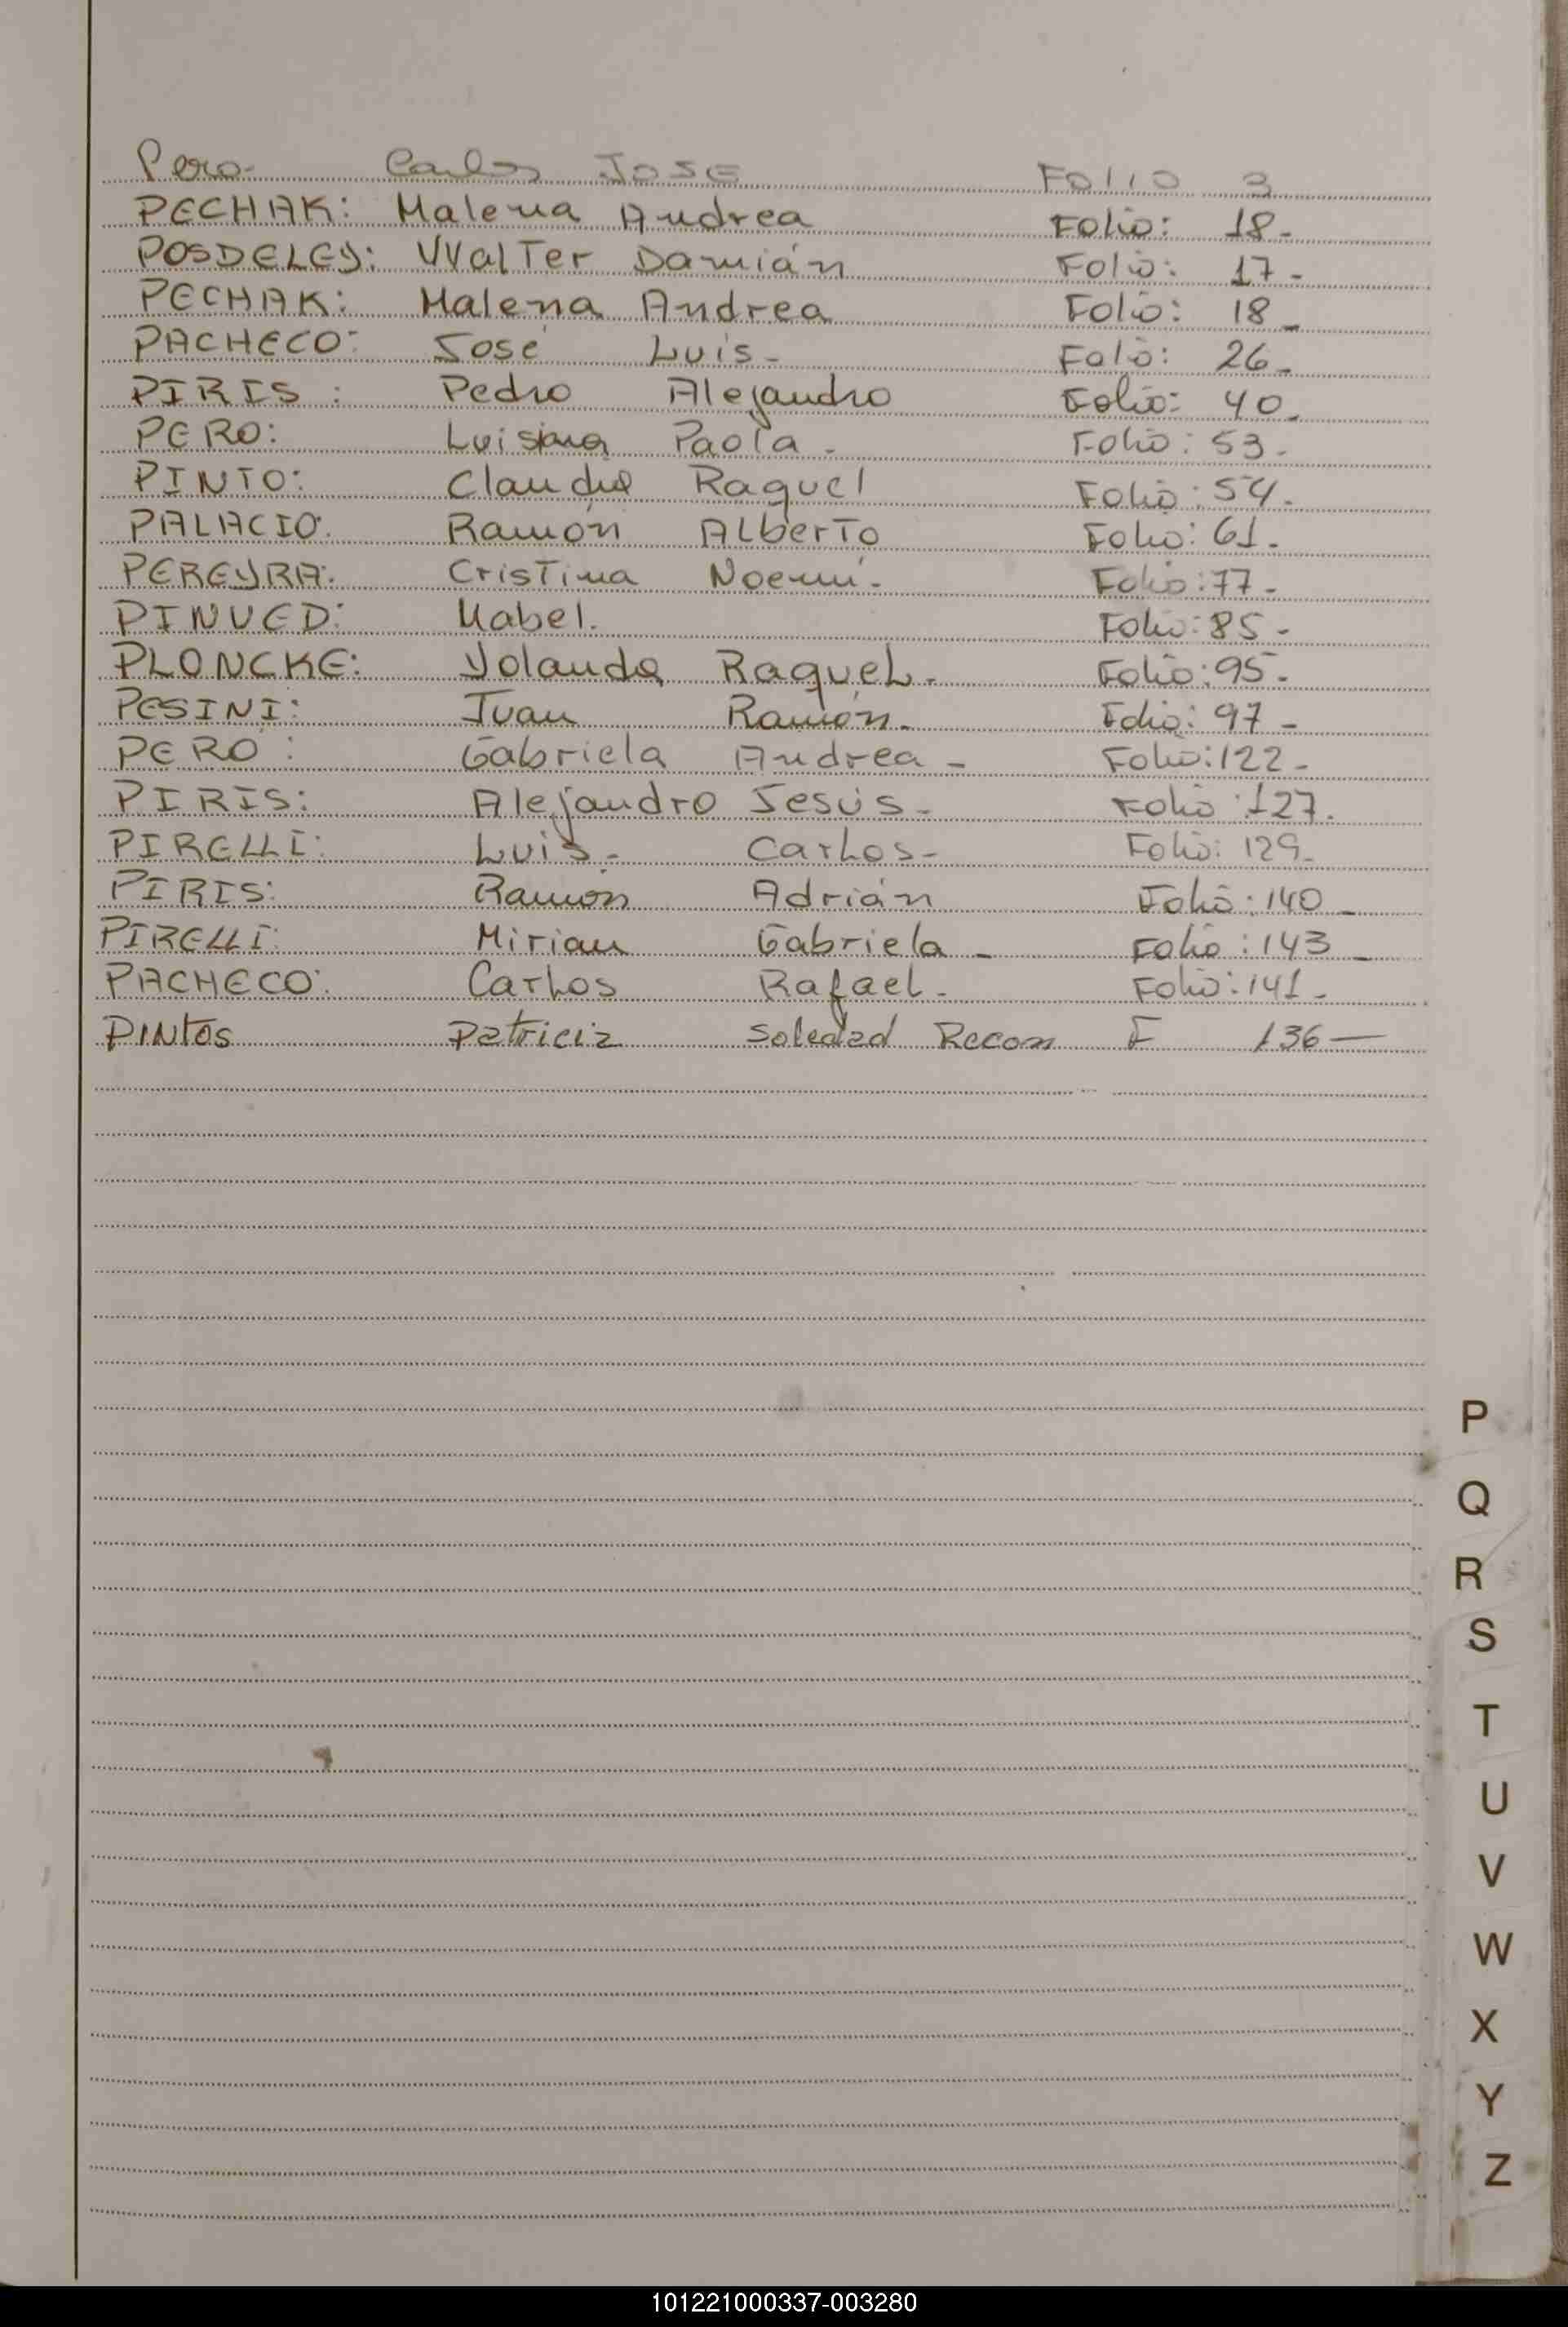 Pero Carlos JOSE FOLIO 3
PECHAK: Malena Andrea Folio: 18-
POSDELEY: WalTer Damián Folio: 17-
PECHAK: Malena Andrea Folio: 18-
PACHECO: José Luis- Folio: 26-
PIRIS: Pedro Alejandro Folio: 40-
PERO: Luisina Paola- Folio: 53-
PINTO: Claudio Raquel Folio: 54-
PALACIO: Ramón ALberTo Folio: 61-
PEREYRA: CrisTina Noemí- Folio: 77-
PINUED: Mabel. Folio: 85-
PLONCKE: Yolanda RaqueL- Folio: 95-
PESINI: Juan Ramón- Folio: 97-
PERO: Gabriela Andrea- Folio: 122-
PIRIS: Alejandro Jesús- Folio: 127.
PIRELLI: Luis- CarLos- Folio: 129-
PIRIS: Ramón Adrián Folio: 140-
PIRELLI: Mirian Gabriela- Folio: 143-
PACHECO: CarLos Rafael- Folio: 141-
PINtos Patricia Soledad Recon F 136-
P
Q
R
S
T
U
V
W
X
Y
Z
101221000337-003280